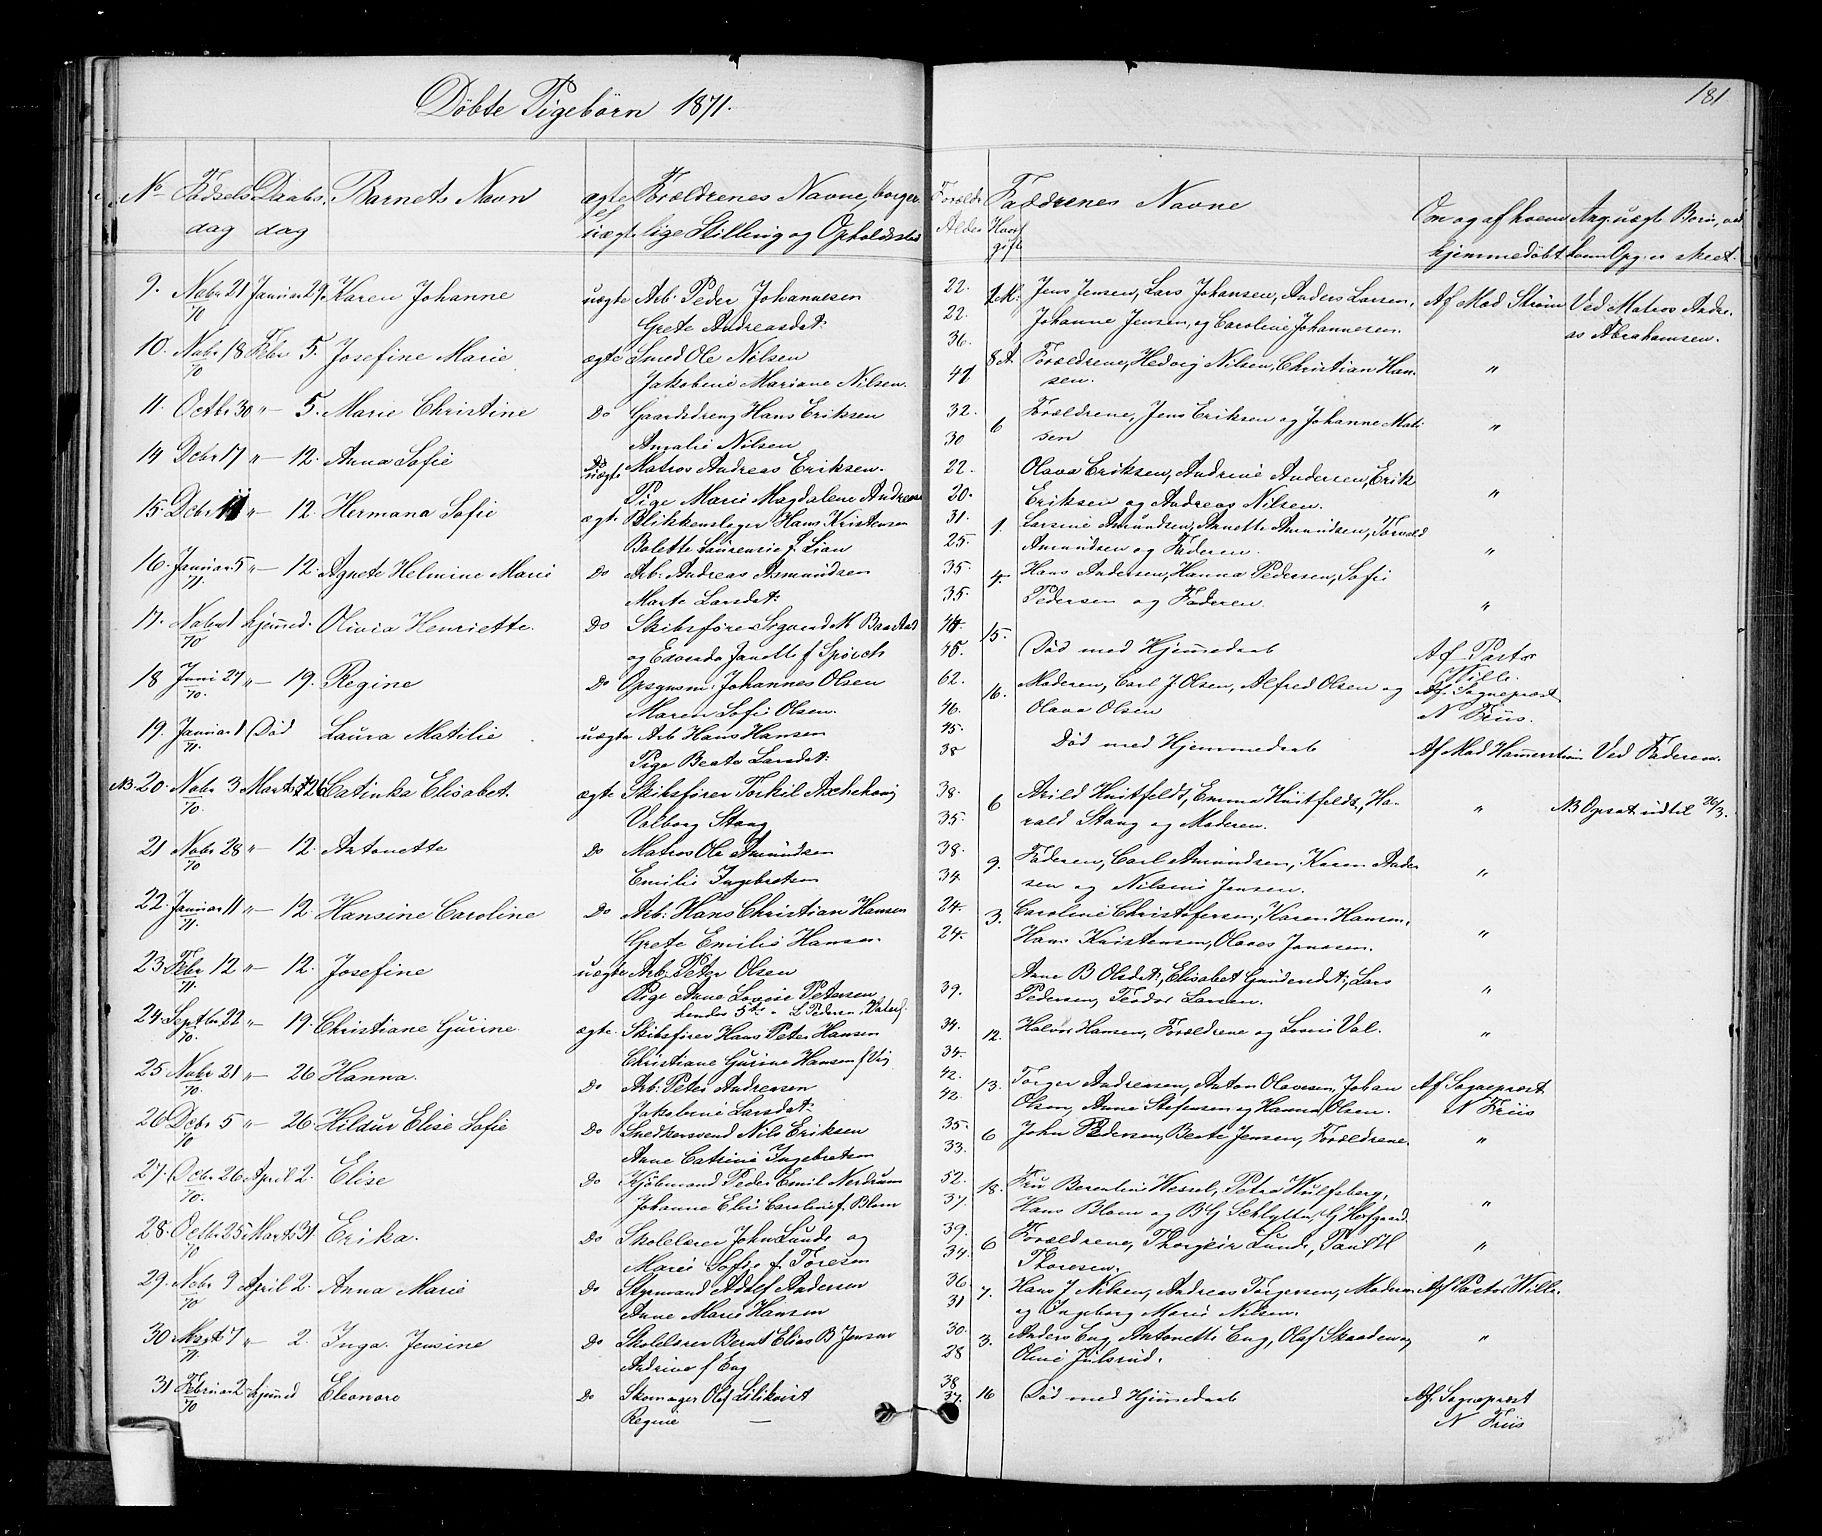 Döbte Pigebörn 1871.
181
No Födsels dag Daabs dag Barnets Navn ægte ell uægte Forældrenes Navne, borger lige Stilling og Opholdssted Forældr Alder Hvor gift Faddrenes Navne Om og af hvem hjemmedöbt Ang: uægte Börn, ved hvem Opg: er skeet.
9. Nobr 21 70 Januar 29 Karen Johanne uægte Arb: Peder Johannesen 22. Jens Jensen, Lars Johansen, Anders Larsen, Af Mad Ström Ved Matros Andre-
Grete Andreasdat: 22. Johanne Jensen, og Caroline Johannesen. as Abrahamsen.
10. Nobr 18 70 Febr 5. Josefine Marie ægte Smed Ole Nilsen 36. 8 Forældrene, Hedvig Nilsen, Christian Han- "
Jakobine Mariane Nilsen. 47 sen.
11. Octbr 30 "— 5. Marie Christine Do Gaardsdreng Hans Eriksen 32. 6 Forældrene, Jens Eriksen og Johanne Mati- "
Amalie Nilsen 30 sen
14 Dcbr 17 "— 12. Anna Sofie uægte Matros Andreas Eriksen. 22. Olava Eriksen, Andrine Andersen, Erik "
Pige Marie Magdalene Andrene 20. Eriksen og Andreas Nilsen.
15. Dcbr "— 12. Hermana Sofie ægte Blikkenslager Hans Kristensen 31. 1. Larsine Amundsen, Annette Amundsen, Torvald "
Bolette Laurensie f. Lian 25. Amundsen og Faderen.
16. Januar 5 71 "— 12. Agnete Helmine Marie Do Arb: Andreas Asmundsen 35. 4. Hans Andersen, Hanna Pedersen, Sofie "
Marte Larsdat: 35. Pedersen og Faderen.
17. Nobr 1 70 hjemed. Olivia Henriette. Do Skibsförer Sigvard M Baastad 15. Död med Hjemmedaab Af Pastor
og Edvarda Janette f Spörch 45. Wille.
18 Juni 27 70. "— 19. Regine Do Opsynsm: Johannes Olsen 62. 16. Moderen, Carl J Olsen, Alfred Olsen og Af Sogneprest
Maren Sofie Olsen. 46. Olava Olsen N Friis.
19. Januar 1 71. Död Laura Matilie uægte Arb Hans Hansen 45. Död med Hjemmedaab Af Mad Hammerstöm Ved Faderen.
Pige Beate Larsdat: 38
NB. 20. Nobr 3 70. Marts 26 Catinka Elisabet. ægte Skibsförer Torkil Aschehoug 38. 6 Arild Huitfeldt, Emma Huitfeldt, Ha- " NB Opsat indtil 26/3.
Valborg Stang 35. rald Stang og Moderen.
21 Nobr 28 70 "— 12. Antonette Do Matros Ole Amundsen 38. 9. Faderen, Carl Amundsen, Karen Ander "
Emilie Ingebretsen 34. sen og Nilsine Jensen.
22. Januar 11 71. "— 12. Hansine Caroline Do Arb: Hans Christian Hansen 24. 3. Caroline Christofersen, Karen Hansen, "
Grete Emilie Hansen. 24. Hans Kristensen, Olaves Jonasen.
23. Febr 12 71. "— 12. Josefine uægte Arb: Peter Olsen Anne B Olsdat:, Elisabet Gundersdt:, Lars "
Pige Anne Lovise Petersen 39. Pedersen, Teodor Larsen.
hendes 5te
24. Septbr 22 70. "— 19. Christiane Gurine. ægte Skibsförer Hans Peter Hansen 34. 12. Halvor Hansen, Forældrene og Lovise Val. "
Christiane Gurine Hansen f Vig 34.
25 Nobr 21 70. "— 26 Hanna. Do Arb: Peter Andreasen 42. 13. Torger Andreasen, Anton Olavesen, Johan Af Sogneprest
Jakobine Larsdat: 42. Olsen, Anne Stefensen og Hanna Olsen. N Friis
26 Dcbr 5 70 "— 26. Hildur Elise Sofie Do Snedkersvend Nils Eriksen 35. 6 John Pedersen, Beate Jensen, Forældrene. "
Anne Catrine Ingebretsen 33.
27. Octbr 26 70. April 2. Elise Do Kjöbmand Peder Emil Nerdrum 52. 18. Fru Berentine Wessel, Petra Wulfsberg, "
Johanne Elise Caroline f. Blom 37. Hans Blom og B G Schlytter, G Hofgaard.
28. Octbr 25 70 Marts 31 Erika. Do Skolelærer John Lunde og 39. 6 Forældrene, Thorgeir Lunde, Paul H "
Marie Sofie f. Toresen 34. Thoresen.
29. Nobr 9 70 April 2. Anna Marie Do Styrmand Adolf Andersen 36. 7. Hans J Nilsen, Andreas Torgersen, Moderen Af Pastor Wille.
Anne Marie Hansen 31 og Ingeborg Marie Nilsen.
30 71. "— 2. Inga Jensine Do Skolelærer Bernt Elias B Jensen 30. 3. Anders Eng, Antonette Eng, Olaf Skaaden og "
Andrine f Eng 28 Oline Julsrud.
31 Februar 2 70 hjemed Eleonore Do Skomager Olaf Lilikvist 38 16 Död med Hjemmedaab Af Sogneprest
Regine — 37. N Friis